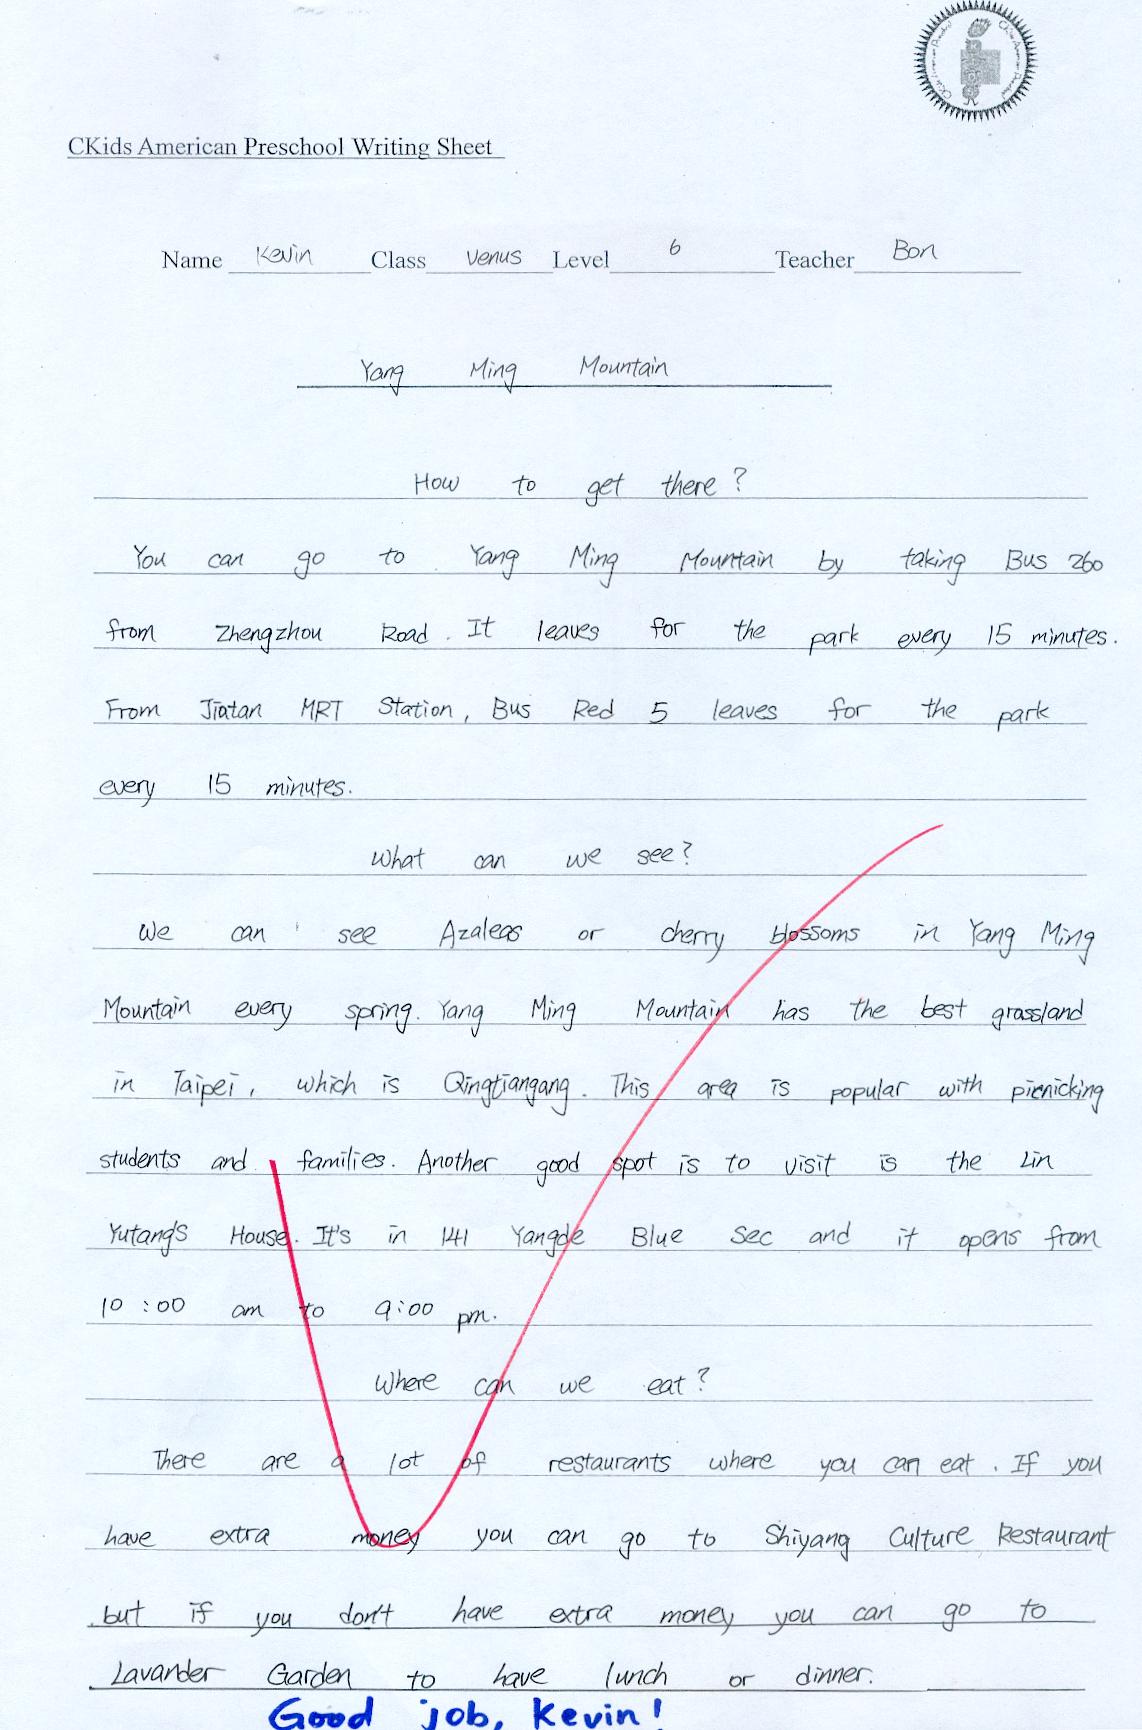 CKids American Preschool Writing Sheet
Name Kevin Class Venus Level 6 Teacher Bon
Yang Ming Mountain
How to get there?
You can go to Yang Ming Mountain by taking Bus 260
from Zhengzhou Road. It leaves for the park every 15 minutes.
From Jiatan MRT Station, Bus Red 5 leaves for the park
every 15 minutes.
What can we see?
We can see Azaleas or cherry blossoms in Yang Ming
Mountain every spring. Yang Ming Mountain has the best grassland
in Taipei, which is Qingtiangang. This area is popular with picnicking
students and families. Another good spot is to visit is the Lin
Yutang's House. It's in 141 Yangde Blue Sec and it opens from
10:00 am to 9:00 pm.
Where can we eat?
There are a lot of restaurants where you can eat. If you
have extra money you can go to Shiyang Culture Restaurant
but if you don't have extra money you can go to
Lavander Garden to have lunch or dinner.
Good job, Kevin!